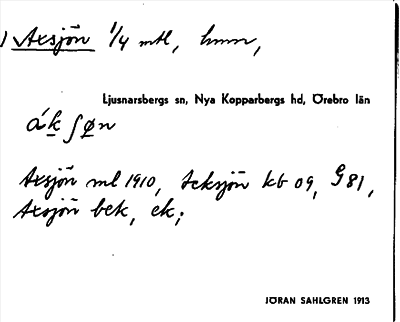 1) Axsjön 1/4 mtl, hmn,
Ljusnarsbergs sn, Nya Kopparbergs hd, Örebro län
ák ʃøn
Axsjön ml 1910, Acksjön kb 09, G 81,
Axsjön bek, ek;
JÖRAN SAHLGREN 1913